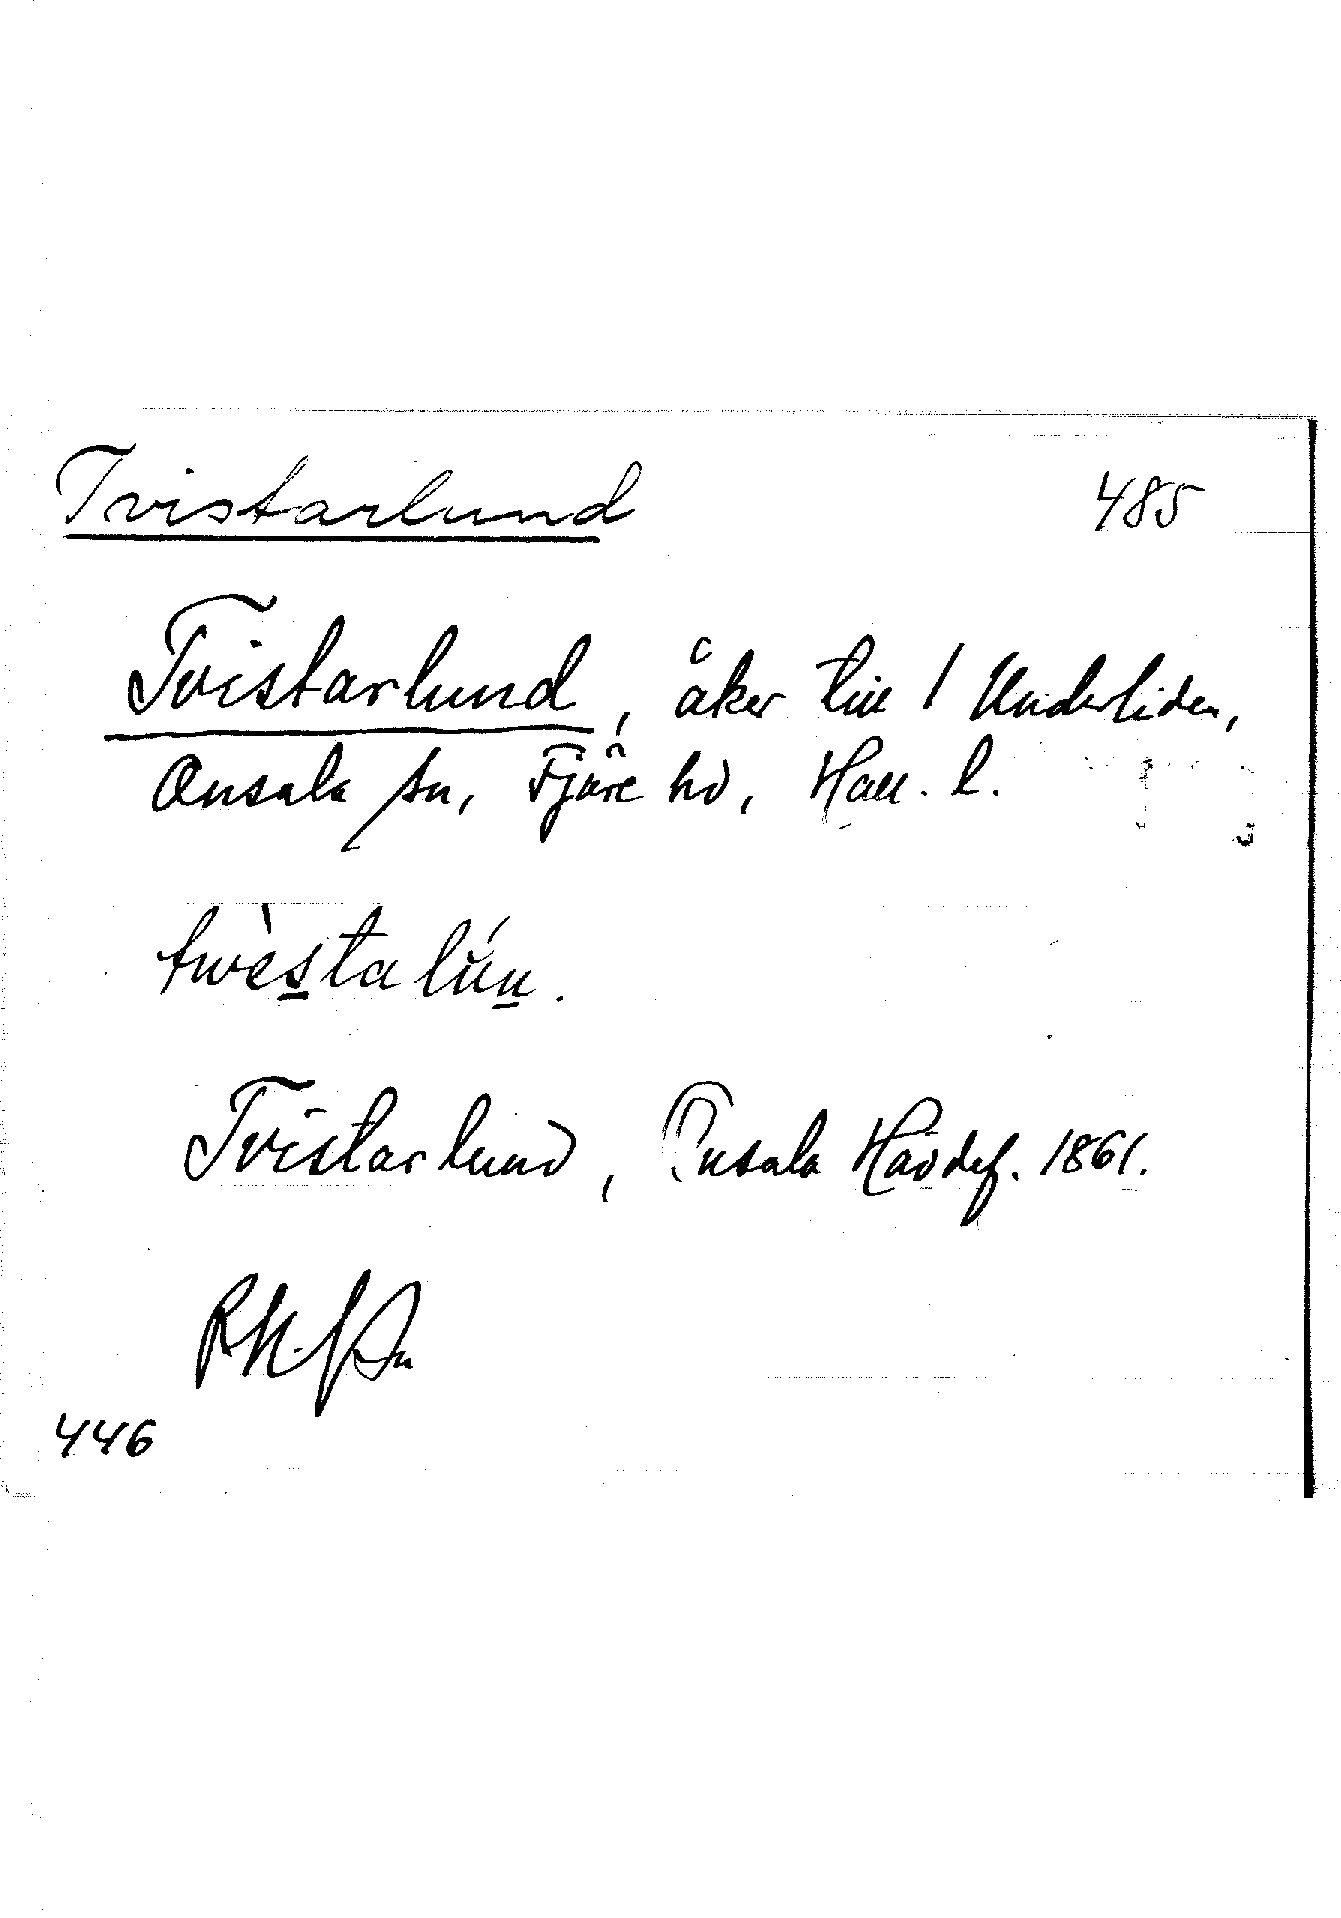 Tvistarlund 485
Tvistarlund, åker till 1 Underliden,
Onsala sn, Fjäre hd, Hall. l.
twèstalún.
Tvistarlund, Onsala Hdvdef. 1861.
446